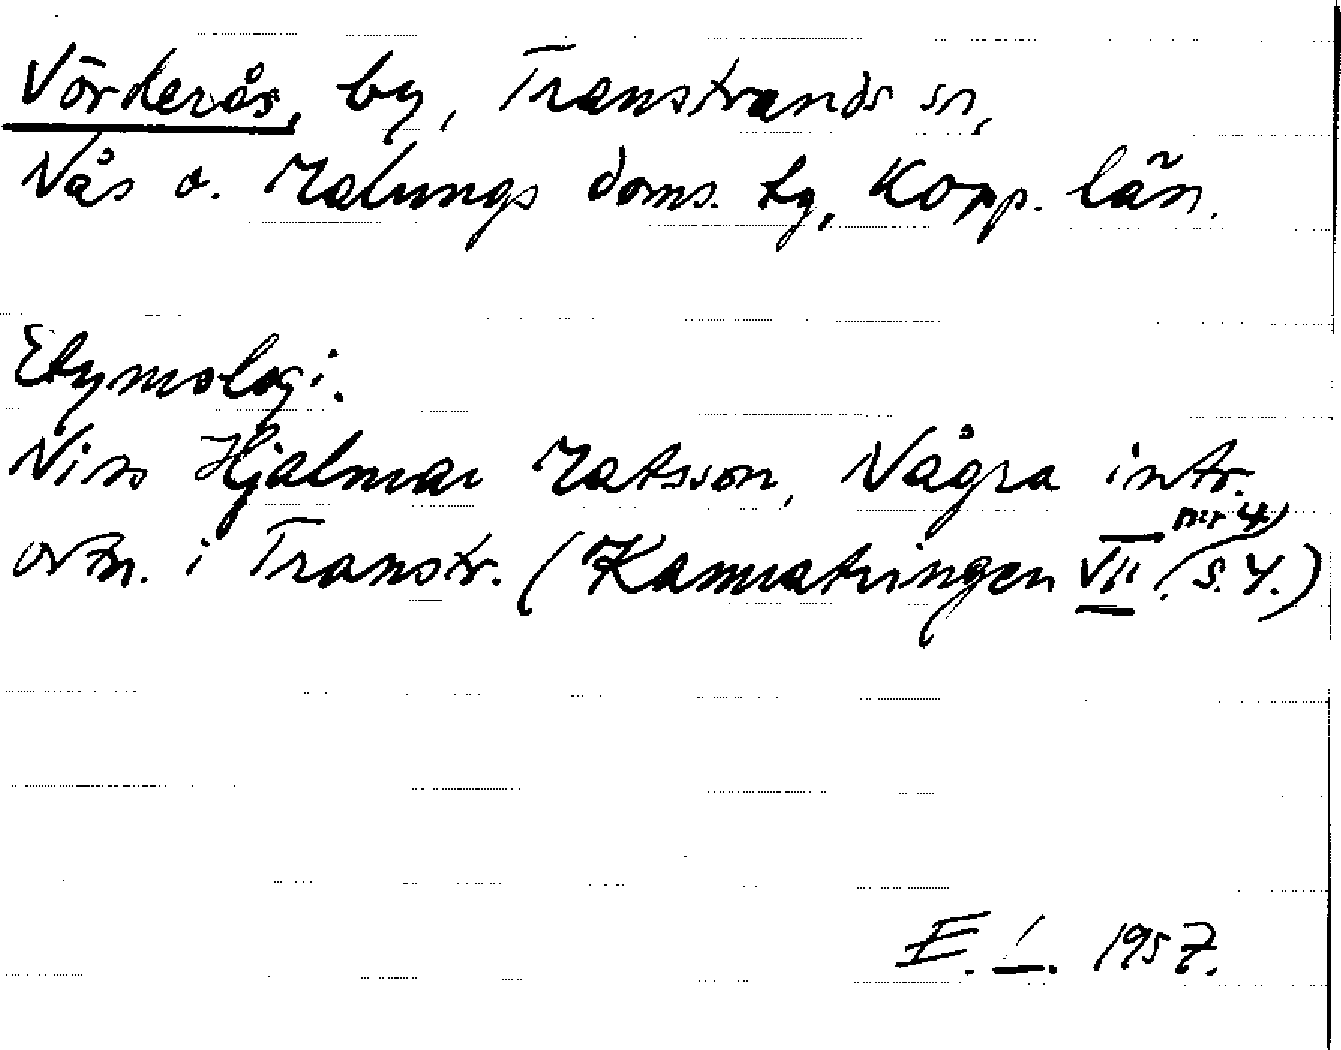 Vörderås, by, Transtrands sn,
Nås o. Malungs doms. tg, Kopp. län.
Etymologi.
Niss Hjalmar Matsson, Några intr.
nr 4)
ortn. i Transtr. (Kamratringen VII, s. 4.)
E. I. 1957.